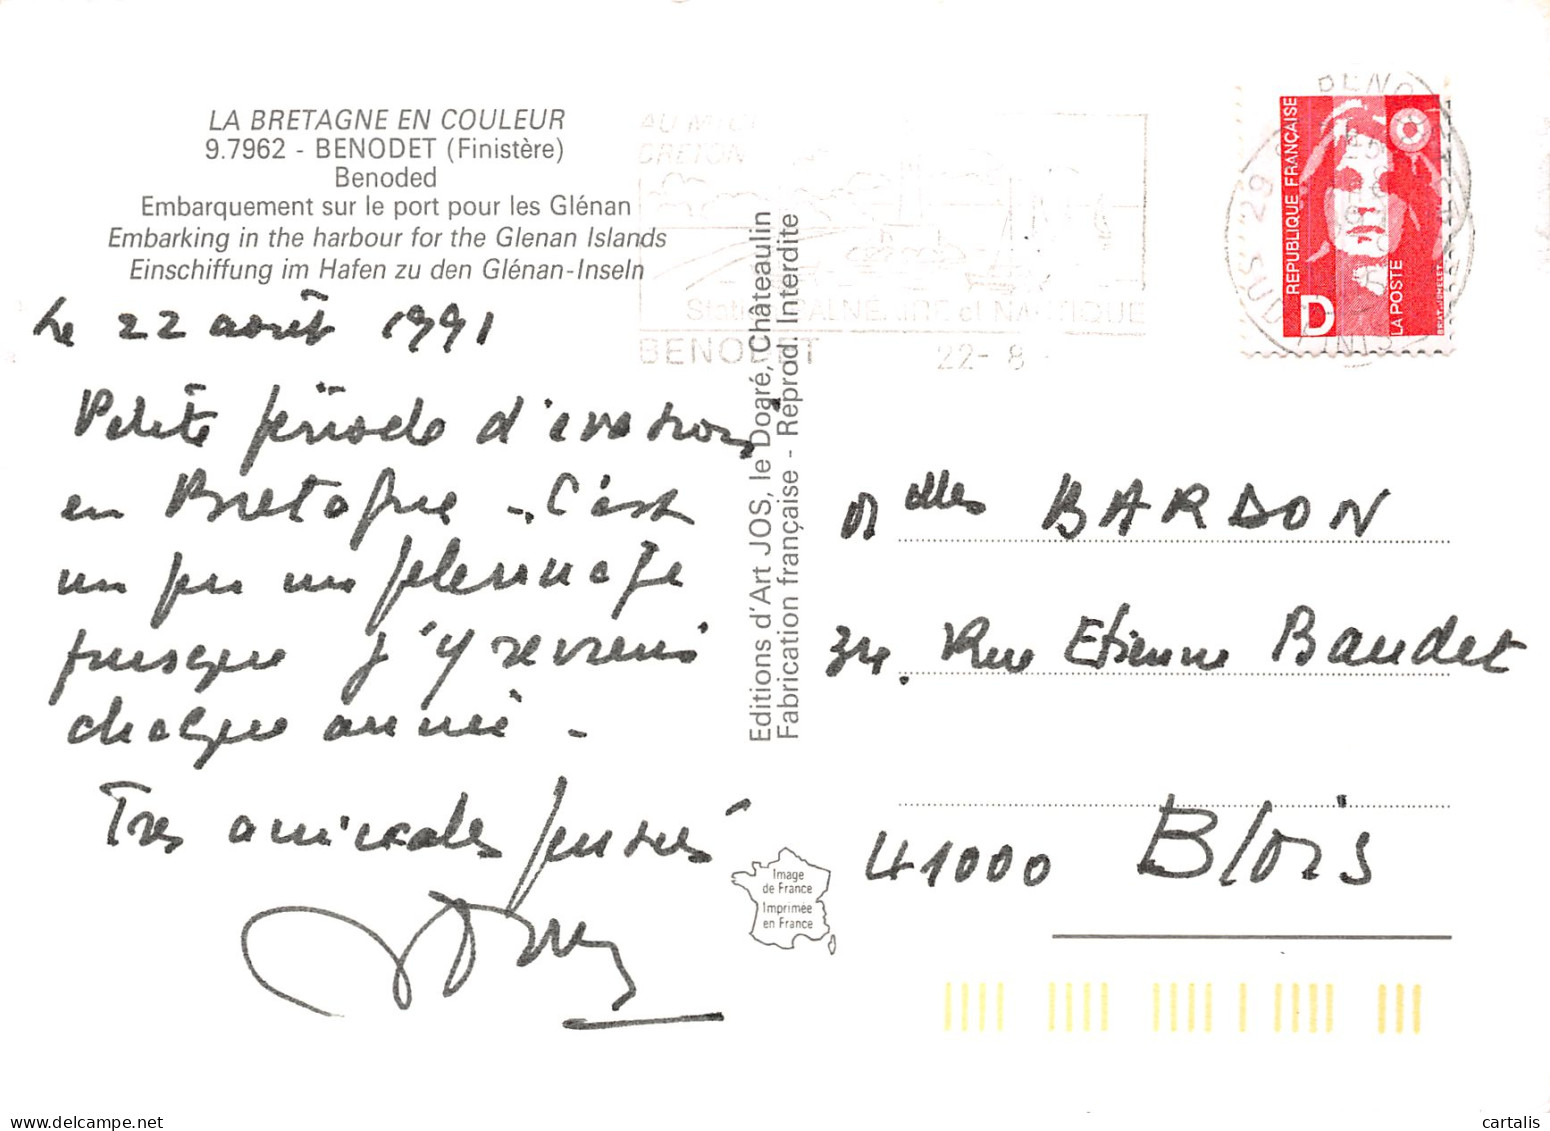 LA BRETAGNE EN COULEUR
9.7962 - BENODET (Finistère)
Benoded
Embarquement sur le port pour les Glénan
Embarking in the harbour for the Glenan Islands
Einschiffung im Hafen zu den Glénan-Inseln
le 22 août 1991
Petite période d'évasion
en Bretagne -. C'est
un peu un pélerinage
puisque j'y reviens
chaque année -
Très amicales pensées
Editions d'Art JOS, le Doaré, Châteaulin
Fabrication française - Reprod. Interdite
Image
de France
Imprimée
en France
BRETON
Station BALNEAIRE et NAUTIQUE
BENODET 22-8
REPUBLIQUE FRANÇAISE
D
LA POSTE
Melles BARDON
34. Rue Etienne Baudet
41000 Blois
cartalis.com